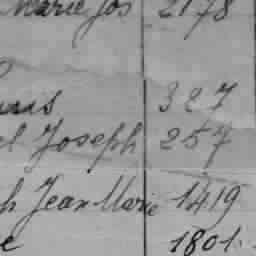 Marie Jos 2178
327
el Joseph 257
h Jean Marie 1419
e 1801.